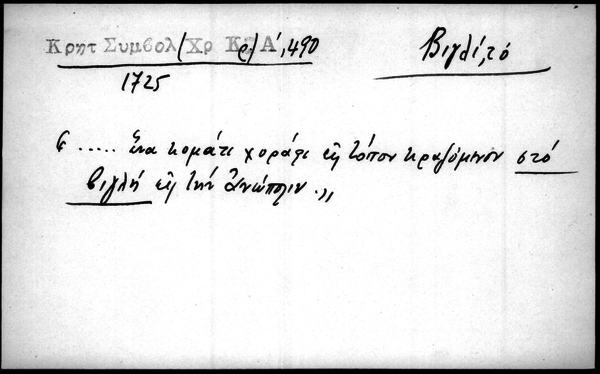 Κρητ Συμβολ/Χρ Κρ/Α΄, 490
Βιγλί, τό
1725
« ..... ἕνα κομάτι χοράφι εἰς τόπον κραζόμενον στό
Βιγλή εἰς τήν Ἀνώπολιν. »